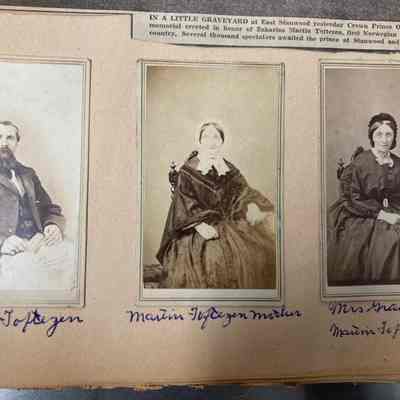 IN A LITTLE GRAVEYARD at East Stanwood yesterday Crown Prince O
memorial erected in honor of Zakarias Martin Toftezen, first Norwegian
country. Several thousand spectators awaited the prince at Stanwood and
Toftezen
Martin Toftezen mother
Mrs Gra
Martin Tof